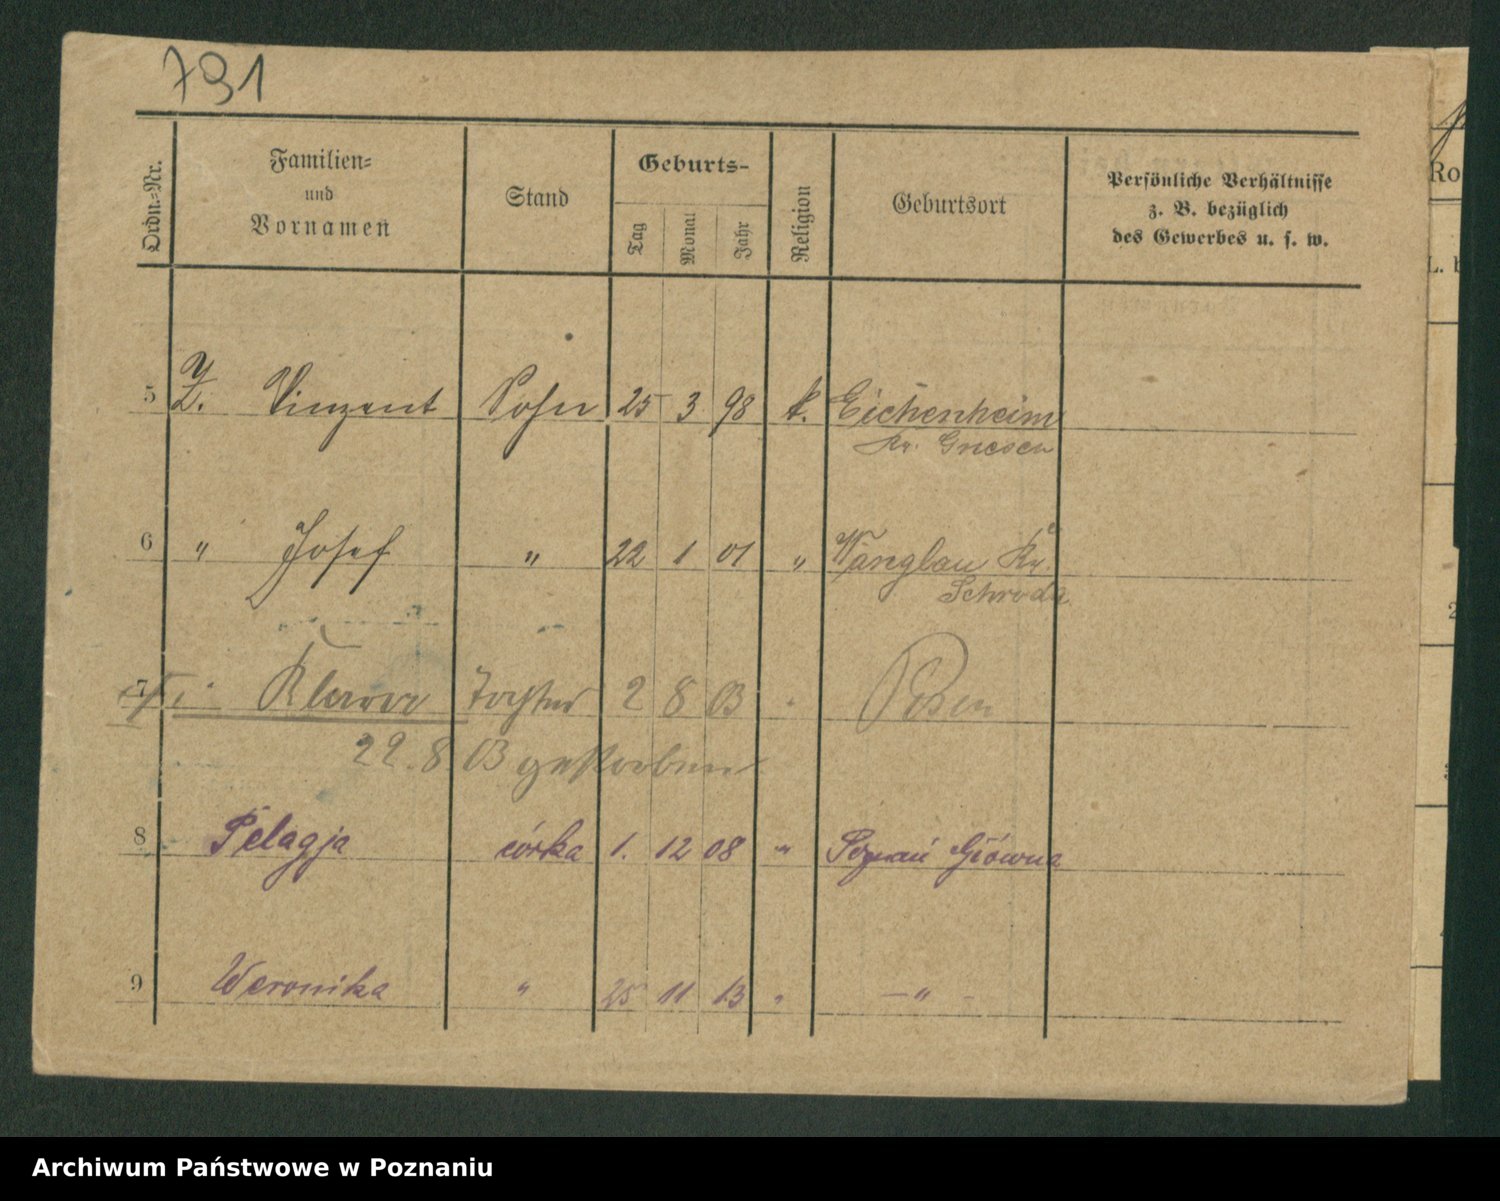 791
Ordn.=Nr.
Familien=
und
Vornamen
Stand
Geburts-
Tag
Monat
Jahr
Religion
Geburtsort
Persönliche Verhältnisse
z. B. bezüglich
des Gewerbes u. s. w.
5 Z. Vinzent Sohn 25 3 98 k. Eichenheim
Kr. Gnesen
6 " Josef " 22 1 01 " Wänglau Kr.
Schroda
7 " Klara Tochter 2 8 03 " Posen
22.8.03 gestorben
8 Pelagja córka 1. 12 08 " Poznań Główna
9 Weronika " 25 11 13 " — " -
Ro
L. b
2
Archiwum Państwowe w Poznaniu